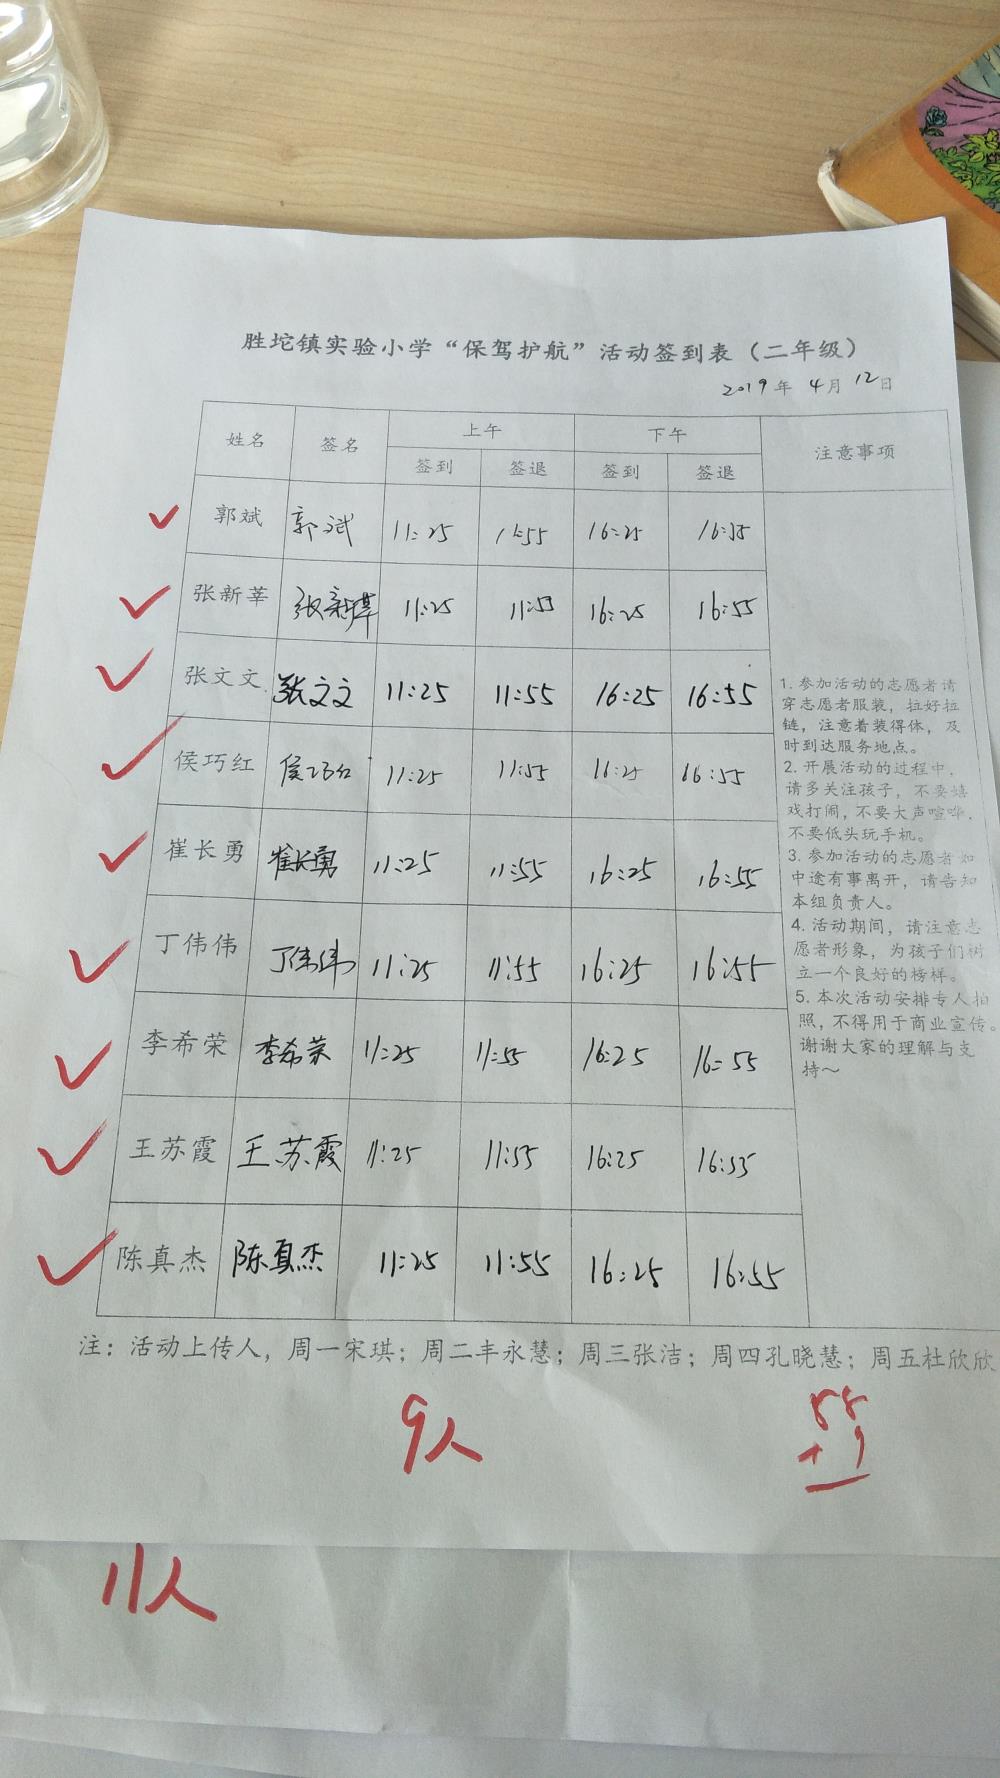 胜坨镇实验小学“保驾护航”活动签到表（二年级）
2019年 4月 12日
姓名 签名 上午 下午 注意事项
签到 签退 签到 签退
郭斌 郭斌 11:25 11:55 16:25
张新莘 张新莘 11:25 11:55 16:25 16:55
张文文 张文文 11:25 11:55 16:25 16:55
侯巧红 侯巧红 11:25 11:55 16:25 16:55
崔长勇 崔长勇 11:25 11:55 16:25 16:55
丁伟伟 丁伟伟 11:25 11:55 16:25 16:55
李希荣 李希荣 11:25 11:55 16:25 16:55
王苏霞 王苏霞 11:25 11:55 16:25 16:55
陈真杰 陈真杰 11:25 11:55 16:25 16:55
1. 参加活动的志愿者请
穿志愿者服装，拉好拉
链，注意着装得体，及
时到达服务地点。
2. 开展活动的过程中，
请多关注孩子，不要嬉
戏打闹，不要大声喧哗，
不要低头玩手机。
3. 参加活动的志愿者如
中途有事离开，请告知
本组负责人。
4. 活动期间，请注意志
愿者形象，为孩子们树
立一个良好的榜样。
5. 本次活动安排专人拍
照，不得用于商业宣传。
谢谢大家的理解与支
持～
注：活动上传人，周一宋琪；周二丰永慧；周三张洁；周四孔晓慧；周五杜欣欣
9人
11人